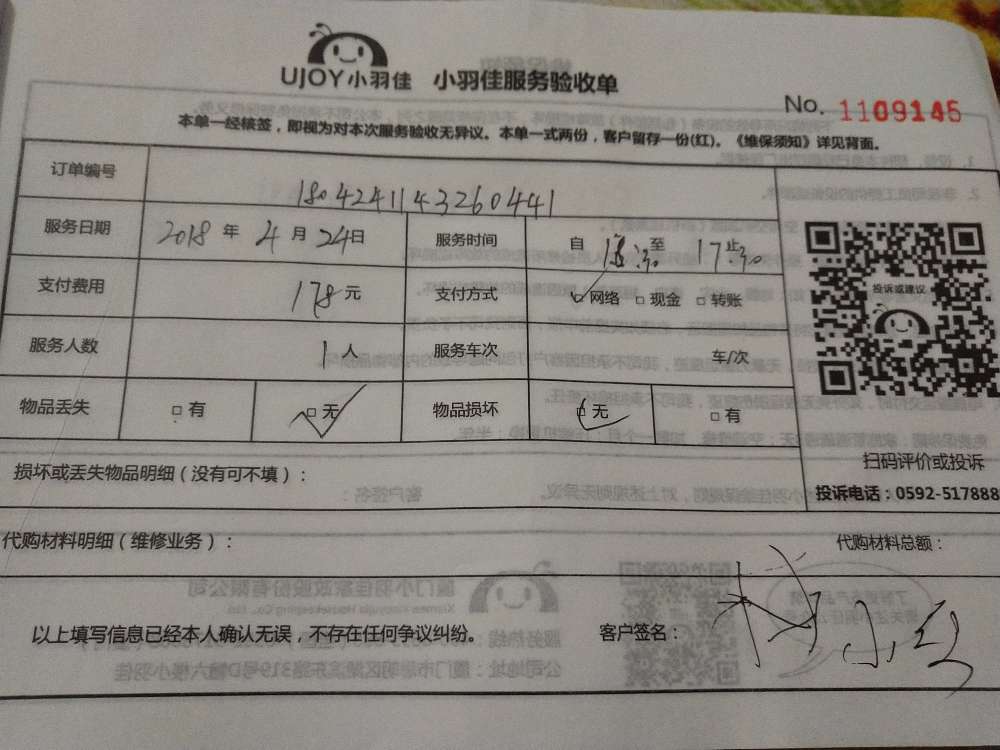 UJOY小羽佳 小羽佳服务验收单
No. 1109145
本单一经核签，即视为对本次服务验收无异议。本单一式两份，客户留存一份(红)。《维保须知》详见背面。
订单编号 180424114326044​1
服务日期 2018 年 4 月 24 日 服务时间 自 至 17:30 止
支付费用 178 元 支付方式 □ 网络 □ 现金 □ 转账
投诉或建议
服务人数 1 人 服务车次 车/次
物品丢失 □ 有 □ 无 物品损坏 □ 无 □ 有
扫码评价或投诉
损坏或丢失物品明细（没有可不填）：
投诉电话：0592-517888
代购材料明细（维修业务）：
代购材料总额：
以上填写信息已经本人确认无误，不存在任何争议纠纷。 客户签名：